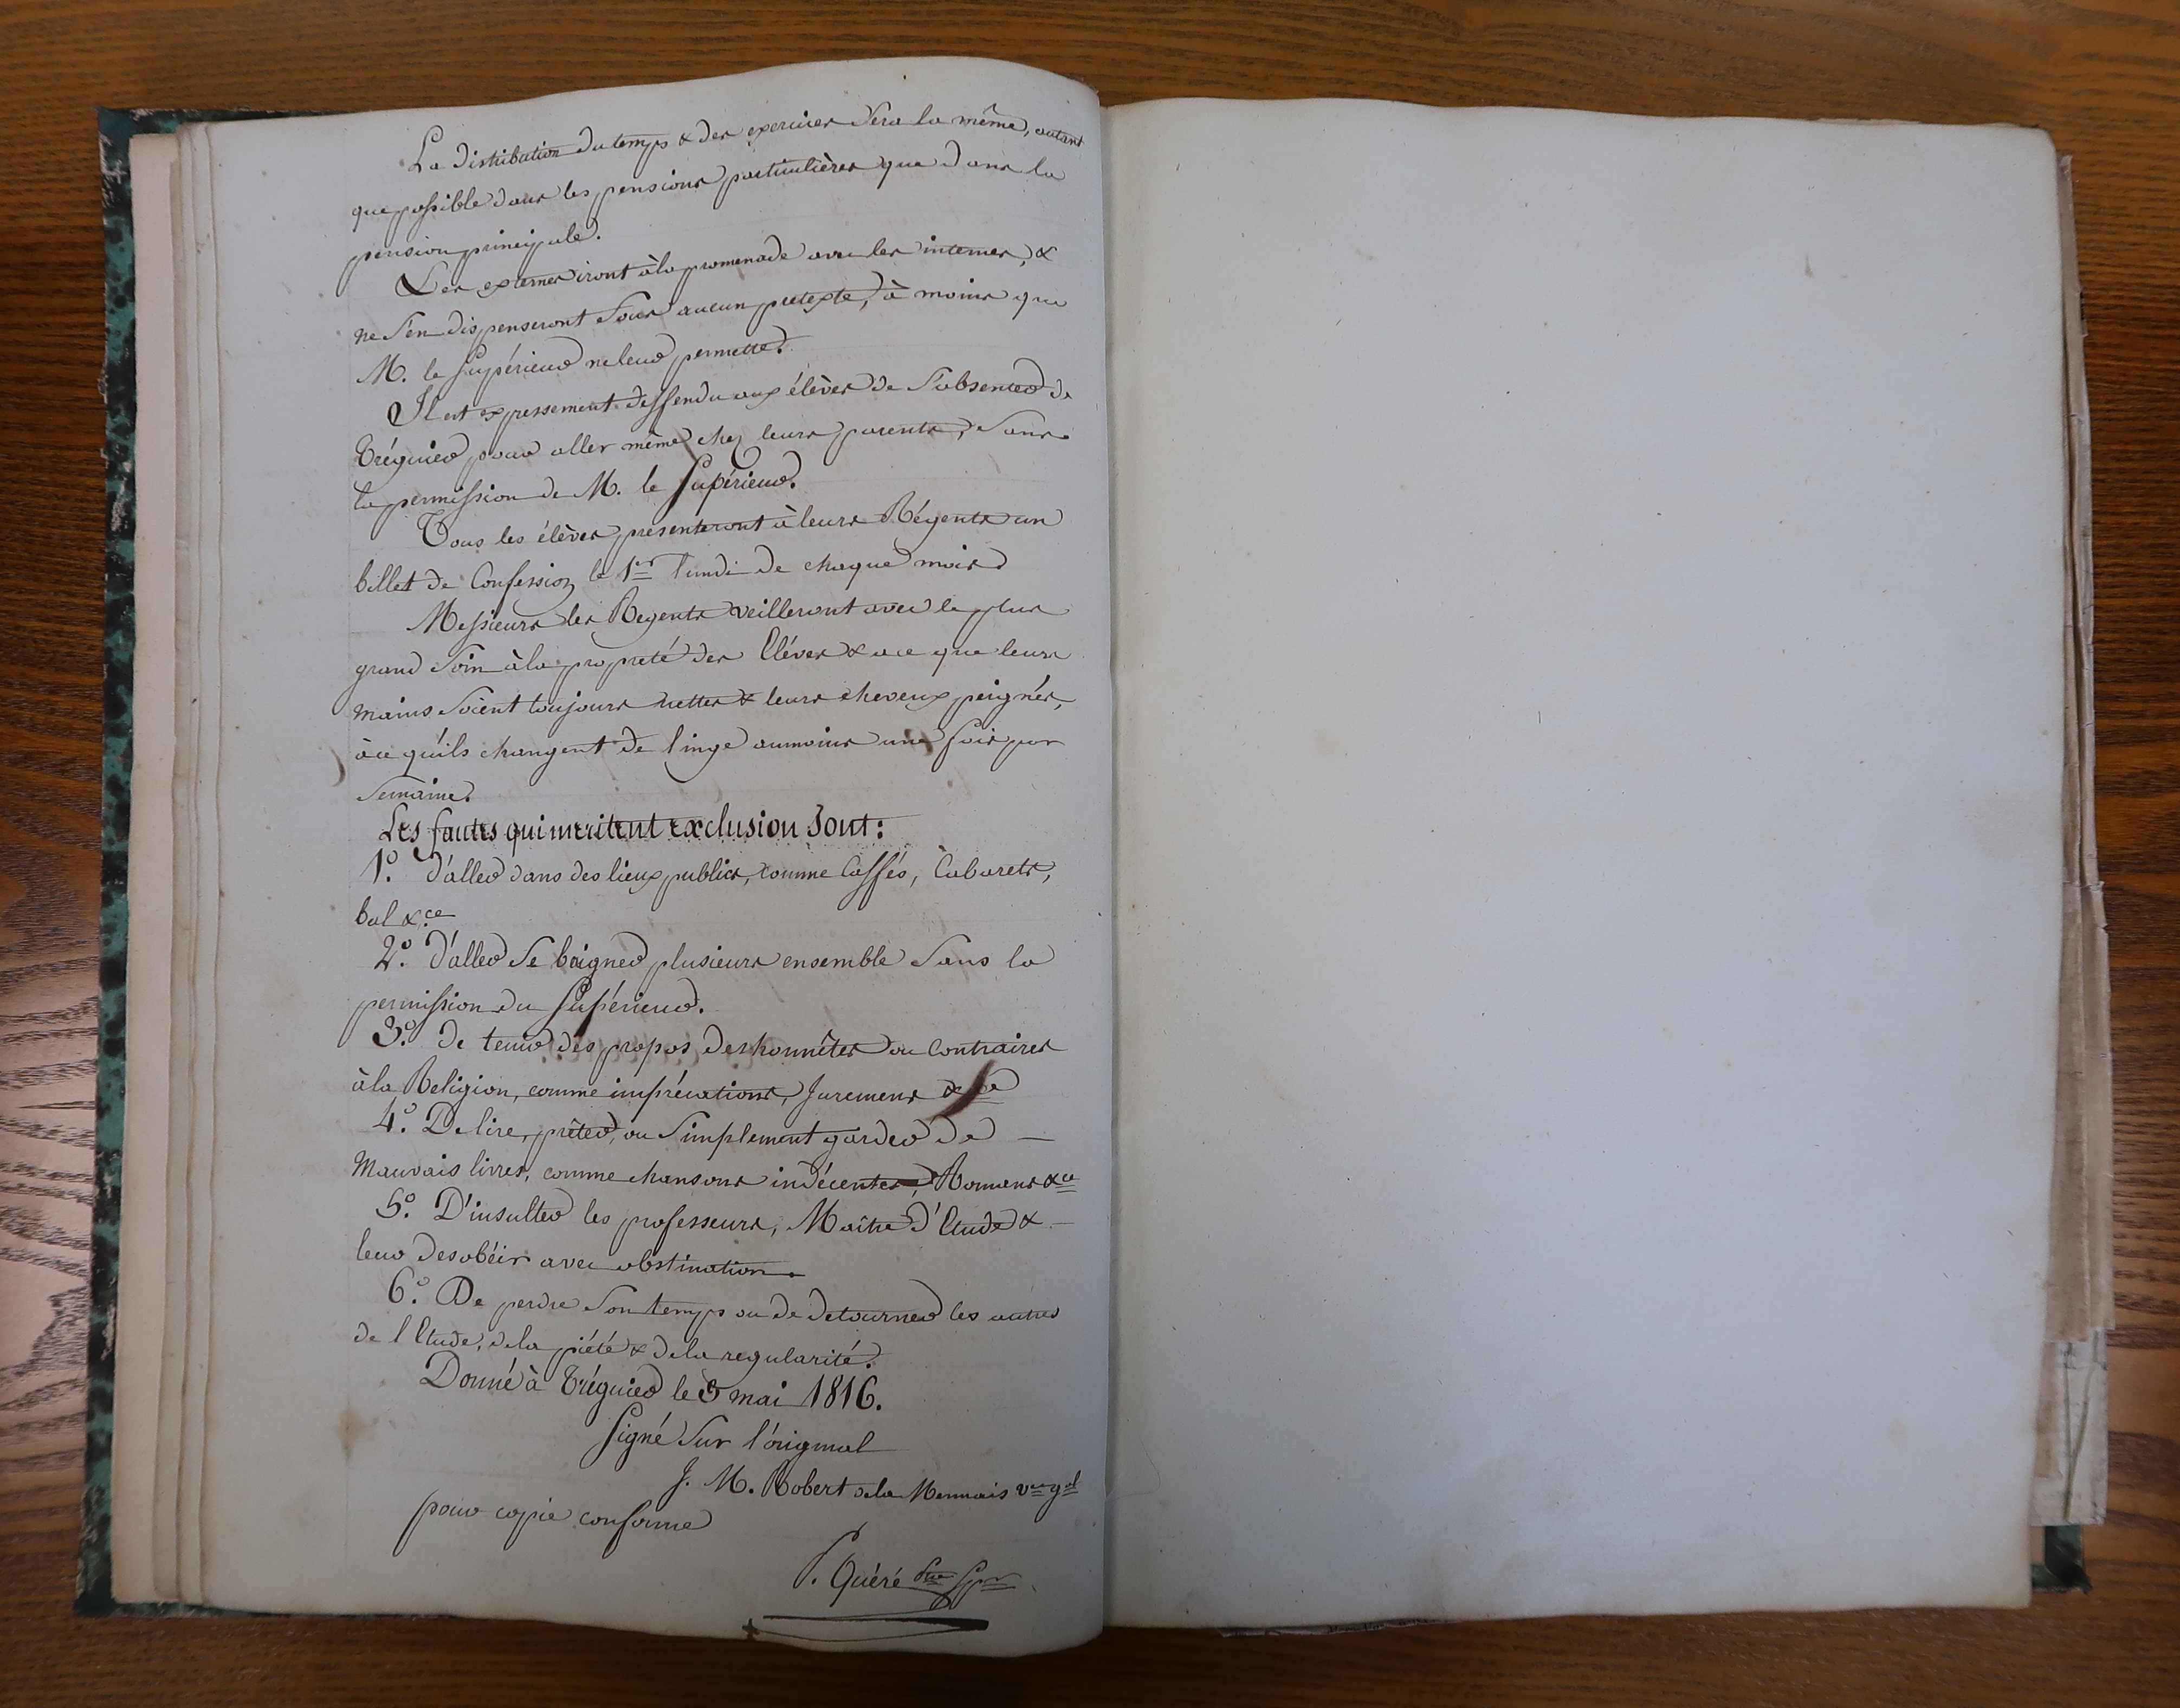 La distribution du temps & des exercices sera la même, autant
que possible dans les pensions particulières que dans la
pension principale.
Les externes iront à la promenade avec les internes, &
ne s'en dispenseront sous aucun pretexte, à moins que
M. le Supérieur ne leur permette.
Il est expressement deffendu aux élèves de s'absenter de
Tréguier pour aller même chez leurs parents, sans
la permission de M. le Supérieur.
Tous les élèves présenteront à leurs Régents un
billet de Confession le 1er lundi de chaque mois
Messieurs les Regents veilleront avec le plus
grand soin à la propreté des Eléves & a ce que leurs
mains soient toujours nettes & leurs cheveux peignés,
à ce qu'ils changent de linge aumoins une fois par
semaine.
Les fautes qui meritent exclusion sont:
1º. d'aller dans des lieux publics, comme Caffés, Cabarets,
bal &.ce
2º. d'aller se baigner plusieurs ensemble sans la
permission du Supérieur.
3º. de tenir des propos deshonnêtes ou contraires
à la Religion, comme imprécations, Juremens &ce
4º. De lire, prêter, ou simplement garder de
mauvais livres, comme chansons indécentes, Romans &ce
5º. D'insulter les professeurs, Maître d'Etude &
leur desobéir avec obstination.
6º. De perdre son temps ou de detourner les autres
de l'Etude, de la piété & de la regularité.
Donné à Tréguier le 3 mai 1816.
Signé sur l'original
J. M. Robert de la Mennais vre gal
pour copie conforme
P. Quéré